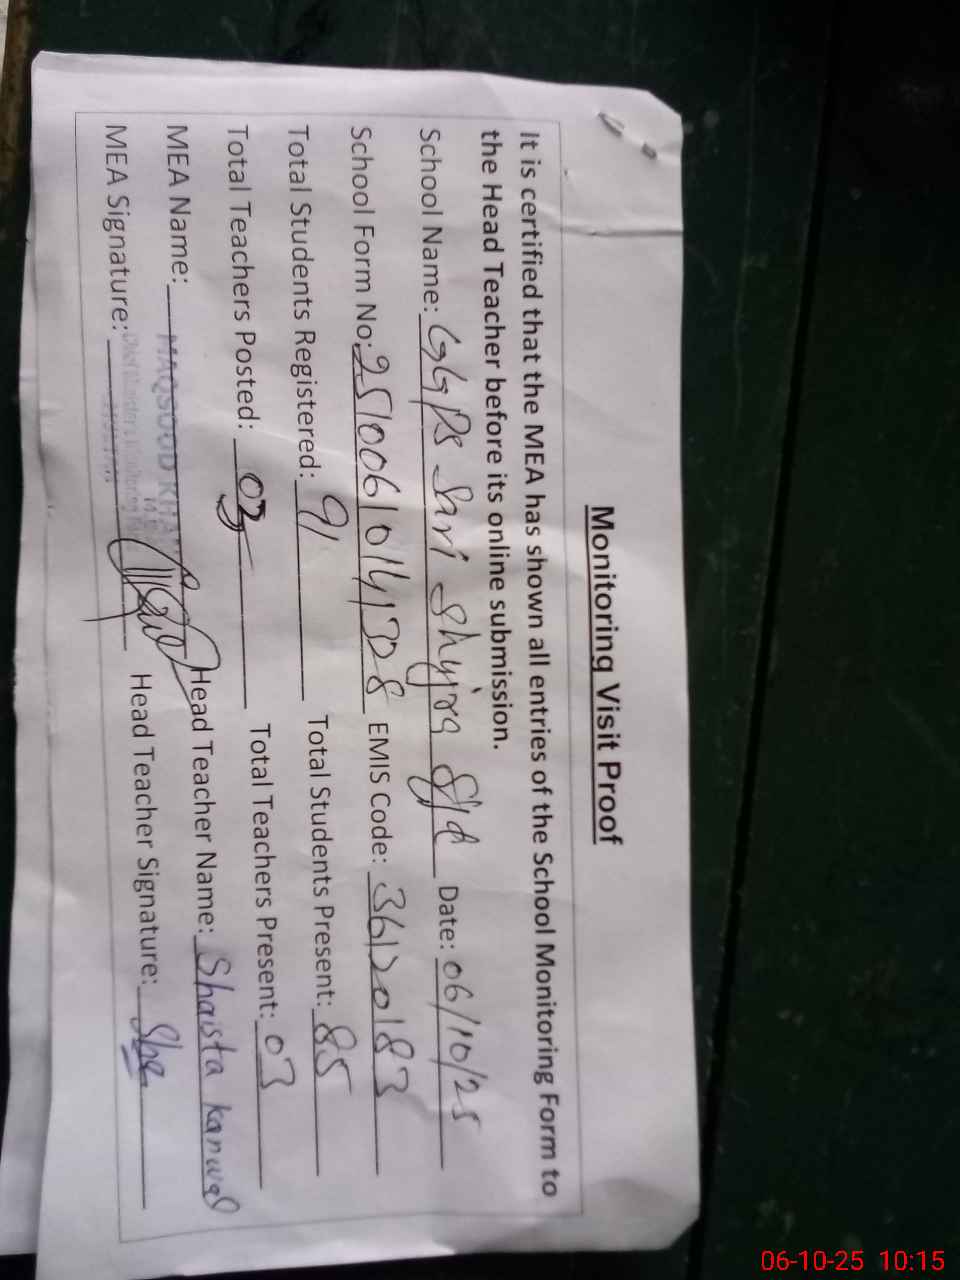 Monitoring Visit Proof
It is certified that the MEA has shown all entries of the School Monitoring Form to
the Head Teacher before its online submission.
School Name: GGPS Sari Date: 06/10/25
School Form No: 25100610141328 EMIS Code: 36120183
Total Students Registered: 91 Total Students Present: 85
Total Teachers Posted: 03 Total Teachers Present: 03
MEA Name: MAQSOOD KHAN Head Teacher Name: Shaista Kanwal
MEA Signature: Head Teacher Signature: Sha
06-10-25 10:15